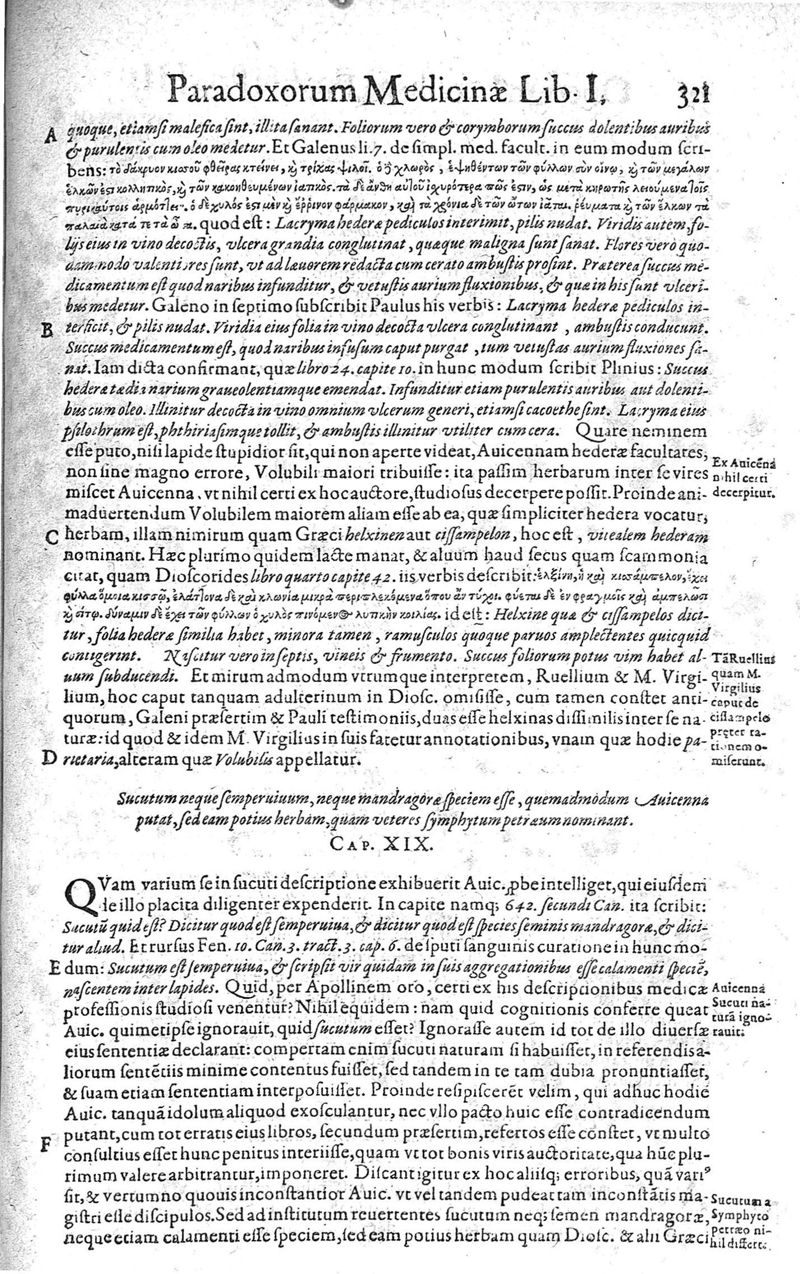 Paradoxorum Medicinæ Lib. I. 321
A quoque, etiamsi malefica sint, illita sanant. Foliorum vero & corymborum succus dolentibus auribus
& purulentis cum oleo medetur. Et Galenus li. 7. de simpl. med. facult. in eum modum scri-
bens: τὸ δάκρυον κισσοῦ φθεῖρας κτείνει, κ τρίχας ψιλοῖ. ὁ χλωρὸς, ἑψηθέντων τῶν φύλλων σὺν οἴνῳ, κ τῶν μεγάλων
ἑλκῶν κολλητικὸς, κ τῶν κακοηθευμένων ἰατικός. τὰ δὲ ἄνθη αὐτοῦ ἰσχυρότερα πῶς ἐστιν, ὡς μετὰ κηρωτῆς λειούμενα τοῖς
πυρικαύτοις ἁρμόττει. ὁ δὲ χυλὸς κ ἔρρινον φάρμακον, κ τὰ χρόνια δὲ τῶν ὤτων ἰᾶται ῥεύματα κ τῶν ἑλκῶν τὰ
παλαιὰ κατά τε τὰ ὦτα. quod est: Lacryma hederæ pediculos interimit, pilis nudat. Viridis autem, fo-
lijs eius in vino decoctis, vlcera grandia conglutinat, quæque maligna sunt sanat. Flores vero quo-
dammodo valentiores sunt, vt ad læuorem redacta cum cerato ambustis prosint. Præterea succus me-
dicamentum est quod naribus infunditur, & vetustis aurium fluxionibus, & quæ in his sunt vlceri-
bus medetur. Galeno in septimo subscribit Paulus his verbis: Lacryma hederæ pediculos in-
B terficit, & pilis nudat. Viridia eius folia in vino decocta vlcera conglutinant, ambustis conducunt.
Succus medicamentum est, quod naribus infusum caput purgat, tum vetustas aurium fluxiones sa-
nat. Iam dicta confirmant, quæ libro 24. capite 10. in hunc modum scribit Plinius: Succus
hederæ tædia narium graueolentiamque emendat. Infunditur etiam purulentis auribus aut dolenti-
bus cum oleo. Illinitur decocta in vino omnium vlcerum generi, etiamsi cacoethe sint. Lacryma eius
psilothrum est, phthiriasimque tollit, & ambustis illinitur vtiliter cum cera. Quare neminem
esse puto, nisi lapide stupidior sit, qui non aperte videat, Auicennam hederæ facultates,
non sine magno errore, Volubili maiori tribuisse: ita passim herbarum inter se vires
miscet Auicenna, vt nihil certi ex hoc auctore, studiosus decerpere possit. Proinde ani-
maduertendum Volubilem maiorem aliam esse ab ea, quæ simpliciter hedera vocatur,
Ex Auicēna
nihil certi
decerpitur.
C herbam, illam nimirum quam Græci helxinen aut cissampelon, hoc est, vitealem hederam
nominant. Hæc plurimo quidem lacte manat, & aluum haud secus quam scammonia
citat, quam Dioscorides libro quarto capite 42. iis verbis describit: ἑλξίνη, ἣ κισσάμπελον, ἔχει
φύλλα ὅμοια κισσῷ, ἐλάττονα δὲ κ κλωνία μικρὰ περιπλεκόμενα ὅπου ἂν τύχοι. φύεται δὲ ἐν φραγμοῖς κ ἀμπελῶσι
κ σίτῳ. δύναμιν δὲ ἔχει τῶν φύλλων ὁ χυλὸς πινόμενος λυτικὴν κοιλίας. id est: Helxine quæ & cissampelos dici-
tur, folia hederæ similia habet, minora tamen, ramusculos quoque paruos amplectentes quicquid
contigerint. Nascitur vero in septis, vineis & frumento. Succus foliorum potus vim habet al-
uum subducendi. Et mirum admodum vtrumque interpretem, Ruellium & M. Virgi-
lium, hoc caput tanquam adulterinum in Diosc. omisisse, cum tamen constet anti-
quorum, Galeni præsertim & Pauli testimoniis, duas esse helxinas dissimilis inter se na-
turæ: id quod & idem M. Virgilius in suis fatetur annotationibus, vnam quæ hodie pa-
D rietaria, alteram quæ Volubilis appellatur.
Tā Ruellius
quam M.
Virgilius
caput de
cissampelo
præter ra-
tionem o-
miserunt.
Sucutum neque semperuiuum, neque mandragoræ speciem esse, quemadmodum Auicenna
putat, sed eam potius herbam, quam veteres symphytum petræum nominant.
CAP. XIX.
QVam varium se in sucuti descriptione exhibuerit Auic. ꝓbe intelliget, qui eiusdem
de illo placita diligenter expenderit. In capite namq; 642. secundi Can. ita scribit:
Sucutū quid est? Dicitur quod est semperuiua, & dicitur quod est species seminis mandragoræ, & dici-
tur aliud. Et rursus Fen. 10. Can. 3. tract. 3. cap. 6. de sputi sanguinis curatione in hunc mo-
E dum: Sucutum est semperuiua, & scripsit vir quidam in suis aggregationibus esse calamenti speciē,
nascentem inter lapides. Quid, per Apollinem oro, certi ex his descriptionibus medicæ
professionis studiosi venentur? Nihil equidem: nam quid cognitionis conferre queat
Auic. qui metipse ignorauit, quid sucutum esset? Ignorasse autem id tot de illo diuersæ
Auicenna
Sucuti na-
turā igno-
rauit.
eius sententiæ declarant: compertam enim sucuti naturam si habuisset, in referendis a-
liorum sentētiis minime contentus fuisset, sed tandem in re tam dubia pronuntiasset,
& suam etiam sententiam interposuisset. Proinde resipiscerēt velim, qui adhuc hodie
Auic. tanquā idolum aliquod exosculantur, nec vllo pacto huic esse contradicendum
F putant, cum tot erratis eius libros, secundum præsertim, refertos esse constet, vt multo
consultius esset hunc penitus interiisse, quam vt tot bonis viris auctoritate, qua hūc plu-
rimum valere arbitrantur, imponeret. Discant igitur ex hoc aliisq; erroribus, quā variꝰ
sit, & vertumno quouis inconstantior Auic. vt vel tandem pudeat tam inconstātis ma-
gistri esse discipulos. Sed ad institutum reuertentes sucutum neq; semen mandragoræ,
neque etiam calamenti esse speciem, sed eam potius herbam quam Diosc. & alii Græci
Sucutum a
Symphyto
petræo ni-
hil differt.